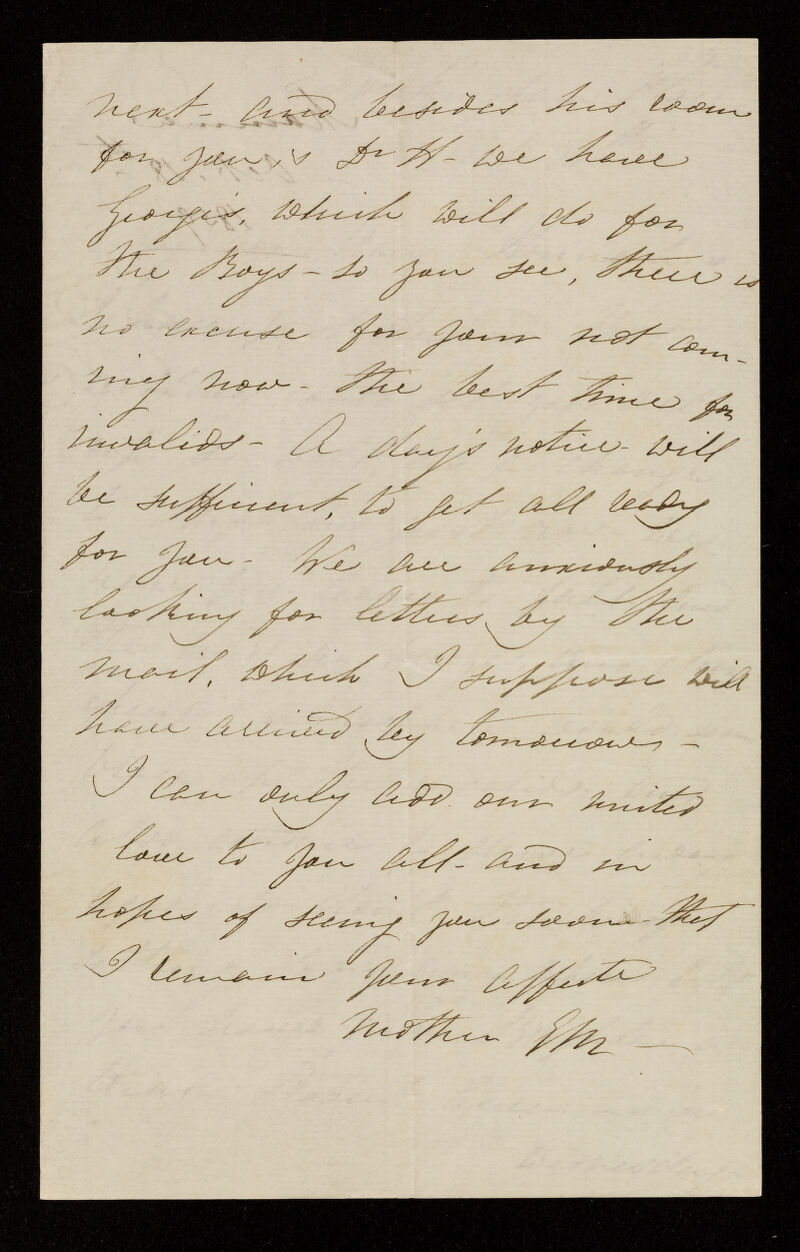 next - and besides his room
for you & Dr H - we have
Georgie's, which will do for
the Boys - so you see, there is
no excuse for your not com-
ing now - the best time for
invalids - A day's notice - will
be sufficient, to get all ready
for you - We are anxiously
looking for letters by the
mail, which I suppose will
have arrived by tomorrow -
I can only add our united
love to you all - and in
hopes of seeing you soon - that
I remain your affecte
Mother EM -